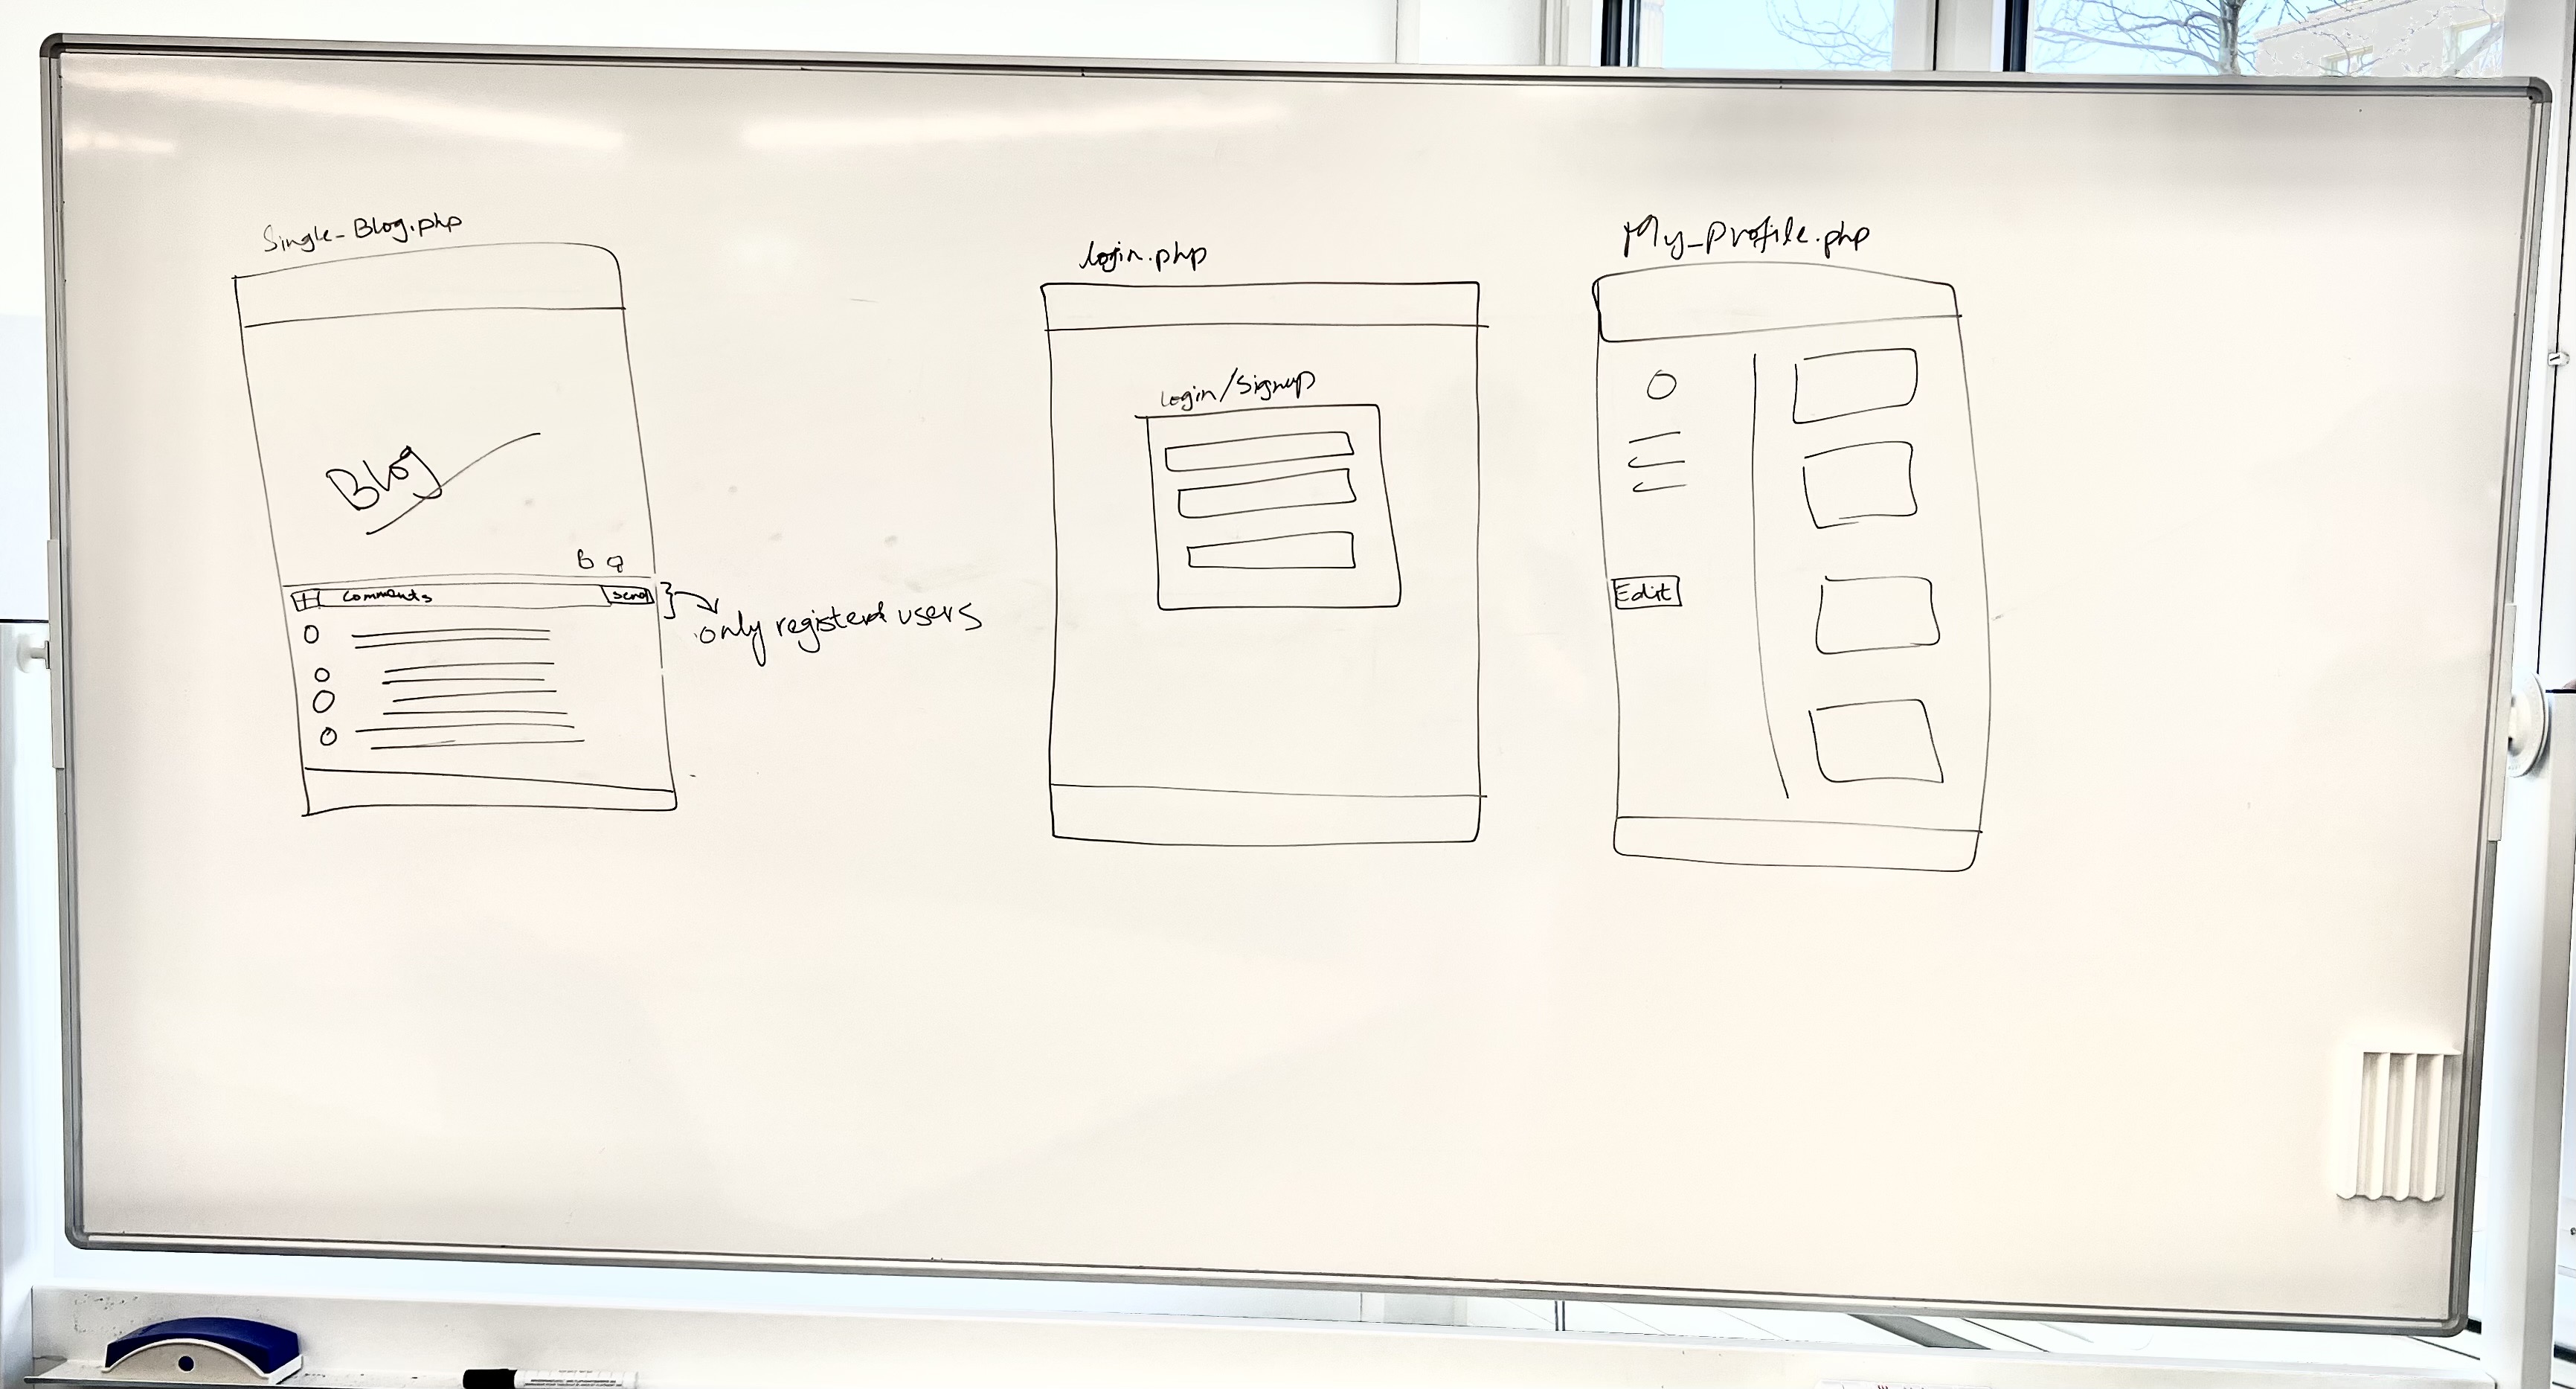 Single_Blog.php
Blog
comments
send
only registerd users
login.php
Login/Signup
My_Profile.php
Edit